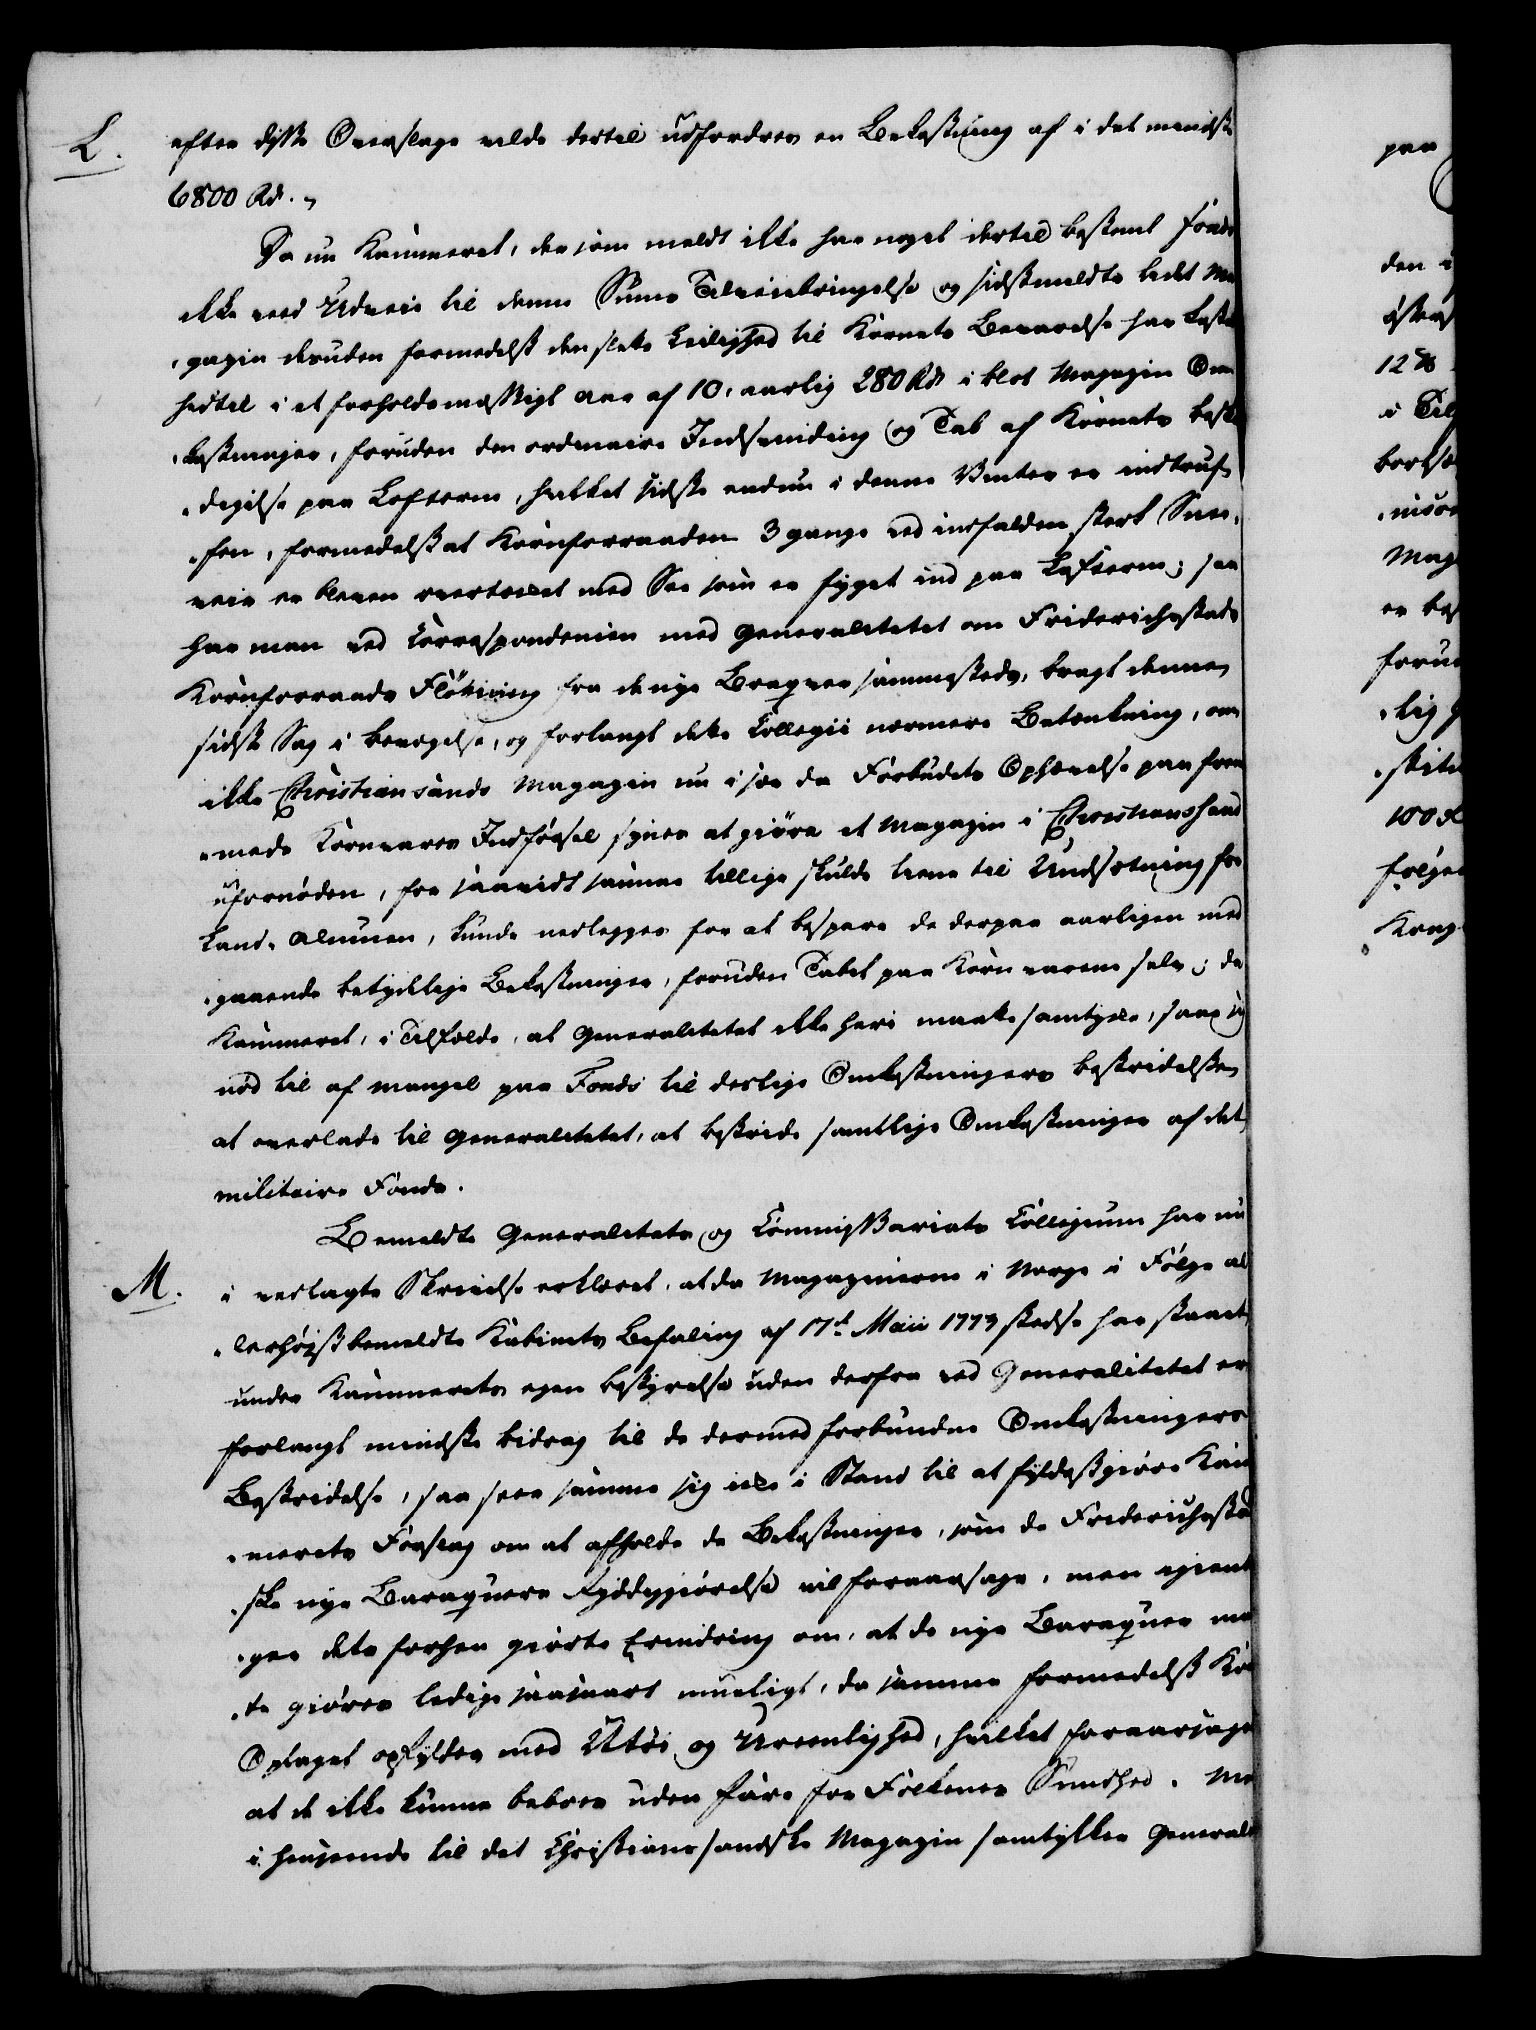 L. efter disse Overslage vilde dertil udfordres en Bekostning af i det mindste
6800 Rd.
Da nu Kammeret, der som meldt ikke har noget dertil bestemt fond
ikke veed Udveie til denne Summes Tilveiebringelse og sidstmeldte
gazin desuden formedelst den slette Leilighed til Kornets Bevarelse har
hidtil i et forholdsmæssigt Aar af 10, aarlig 280 Rd i blot Magazin Om
kostninger, foruden den ordinaire Indsvinding og Tab af Kornets beska
digelse paa Lofterne, hvilket sidste endnu i denne Vinter er indtruf
fen, formedelst at Kornforraaden 3 gange ved indfalden sterk Snee
veir er bleven overtrukket med Snee som er føget ind paa Lofterne; saa
har man ved Correspondencen med Generalitetet om Friderichsstads
Kornforraads Fløtning fra de nye Braquer sammesteds, bragt denne
sidste Sag i bevægelse, og forlangt dette Collegii nærmere Betænkning, om
ikke Christiansands Magazin nu i sær da Forbudets Ophævelse paa frem
mede Kornvarers Indførsel synes at giøre et Magazin i Christianssand
ufornøden, for saavidt samme tillige skulde tiene til Undsætning for
Land-Almuen, kunde nedlegges for at bespare de derpaa aarligen med
gaaende betydelige Bekostninger, foruden Tabet paa Kornvarene selv; da
Kammeret, i Tilfælde, at Generalitetet ikke heri maatte samtykke, saae sig
nød til af mangel paa Fonds til deslige Omkostningers bestridelse
at overlade til Generalitetet, at bestride samtlige Omkostninger af det
militaire Fonds.
Bemeldte Generalitets og Commissariats Collegium har nu
M. i vedlagte Skrivelse erklæret, at da Magazinerne i Norge i Følge al
lerhøistbemeldte Kabinets Befaling af 17de Maii 1773 stedse har staaet
under Kammerets egen bestyrelse uden derfra ved Generalitetet er
forlangt mindste bidrag til de dermed forbundne Omkostningers
Bestridelse, saa seer samme sig ikke i Stand til at fyldestgiøre Kam
merets Forslag om at afholde de Bekostninger, som de Friderichsstad
ske nye Baraquers Ryddiggiørelse vil foraarsage, men igient
ger dets forhen giorte Erindring om, at de nye Baraquer maa
te giøres ledige saasnart mueligt, da samme formedelst Korn
Oplaget opfyldes med Utøi og Ureenlighed, hvilket foraarsager
at de ikke kunne beboes uden fare for Folkenes Sundhed. Men
i henseende til det Christianssandske Magazin samtykker General
paa
den i
12
i Til
bortsæ
Mag
er bes
foru
lig
100
følge